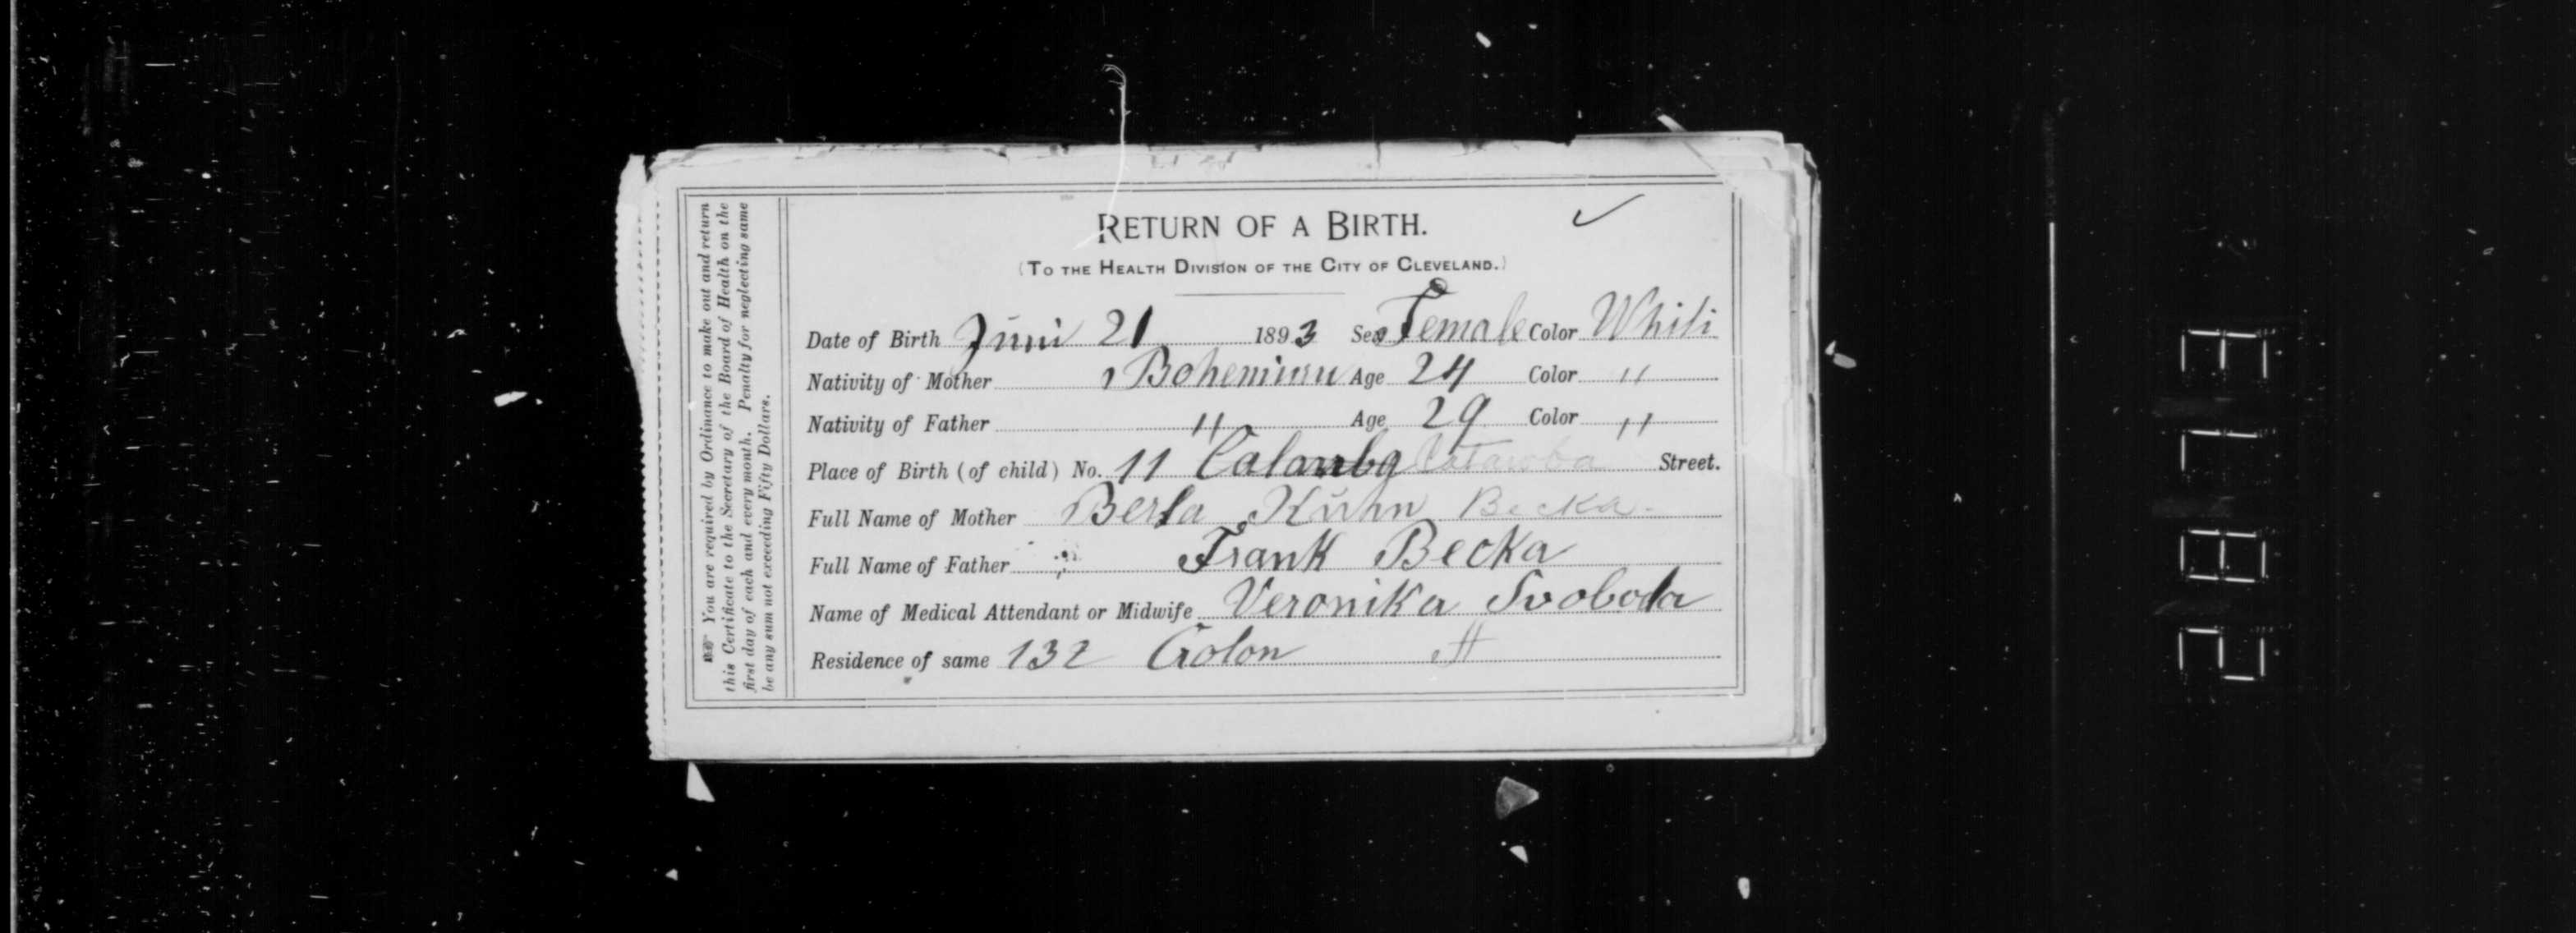 RETURN OF A BIRTH.
(TO THE HEALTH DIVISION OF THE CITY OF CLEVELAND.)
Date of Birth Juni 21 1893 Sex Female Color White
Nativity of Mother Bohemian Age 24 Color "
Nativity of Father " Age 29 Color "
Place of Birth (of child) No. 11 Catawba Street.
Full Name of Mother Berta Kühn Becka
Full Name of Father Frank Becka
Name of Medical Attendant or Midwife Veronika Svoboda
Residence of same 132 Colon St
☞ You are required by Ordinance to make out and return
this Certificate to the Secretary of the Board of Health on the
first day of each and every month. Penalty for neglecting same
be any sum not exceeding Fifty Dollars.